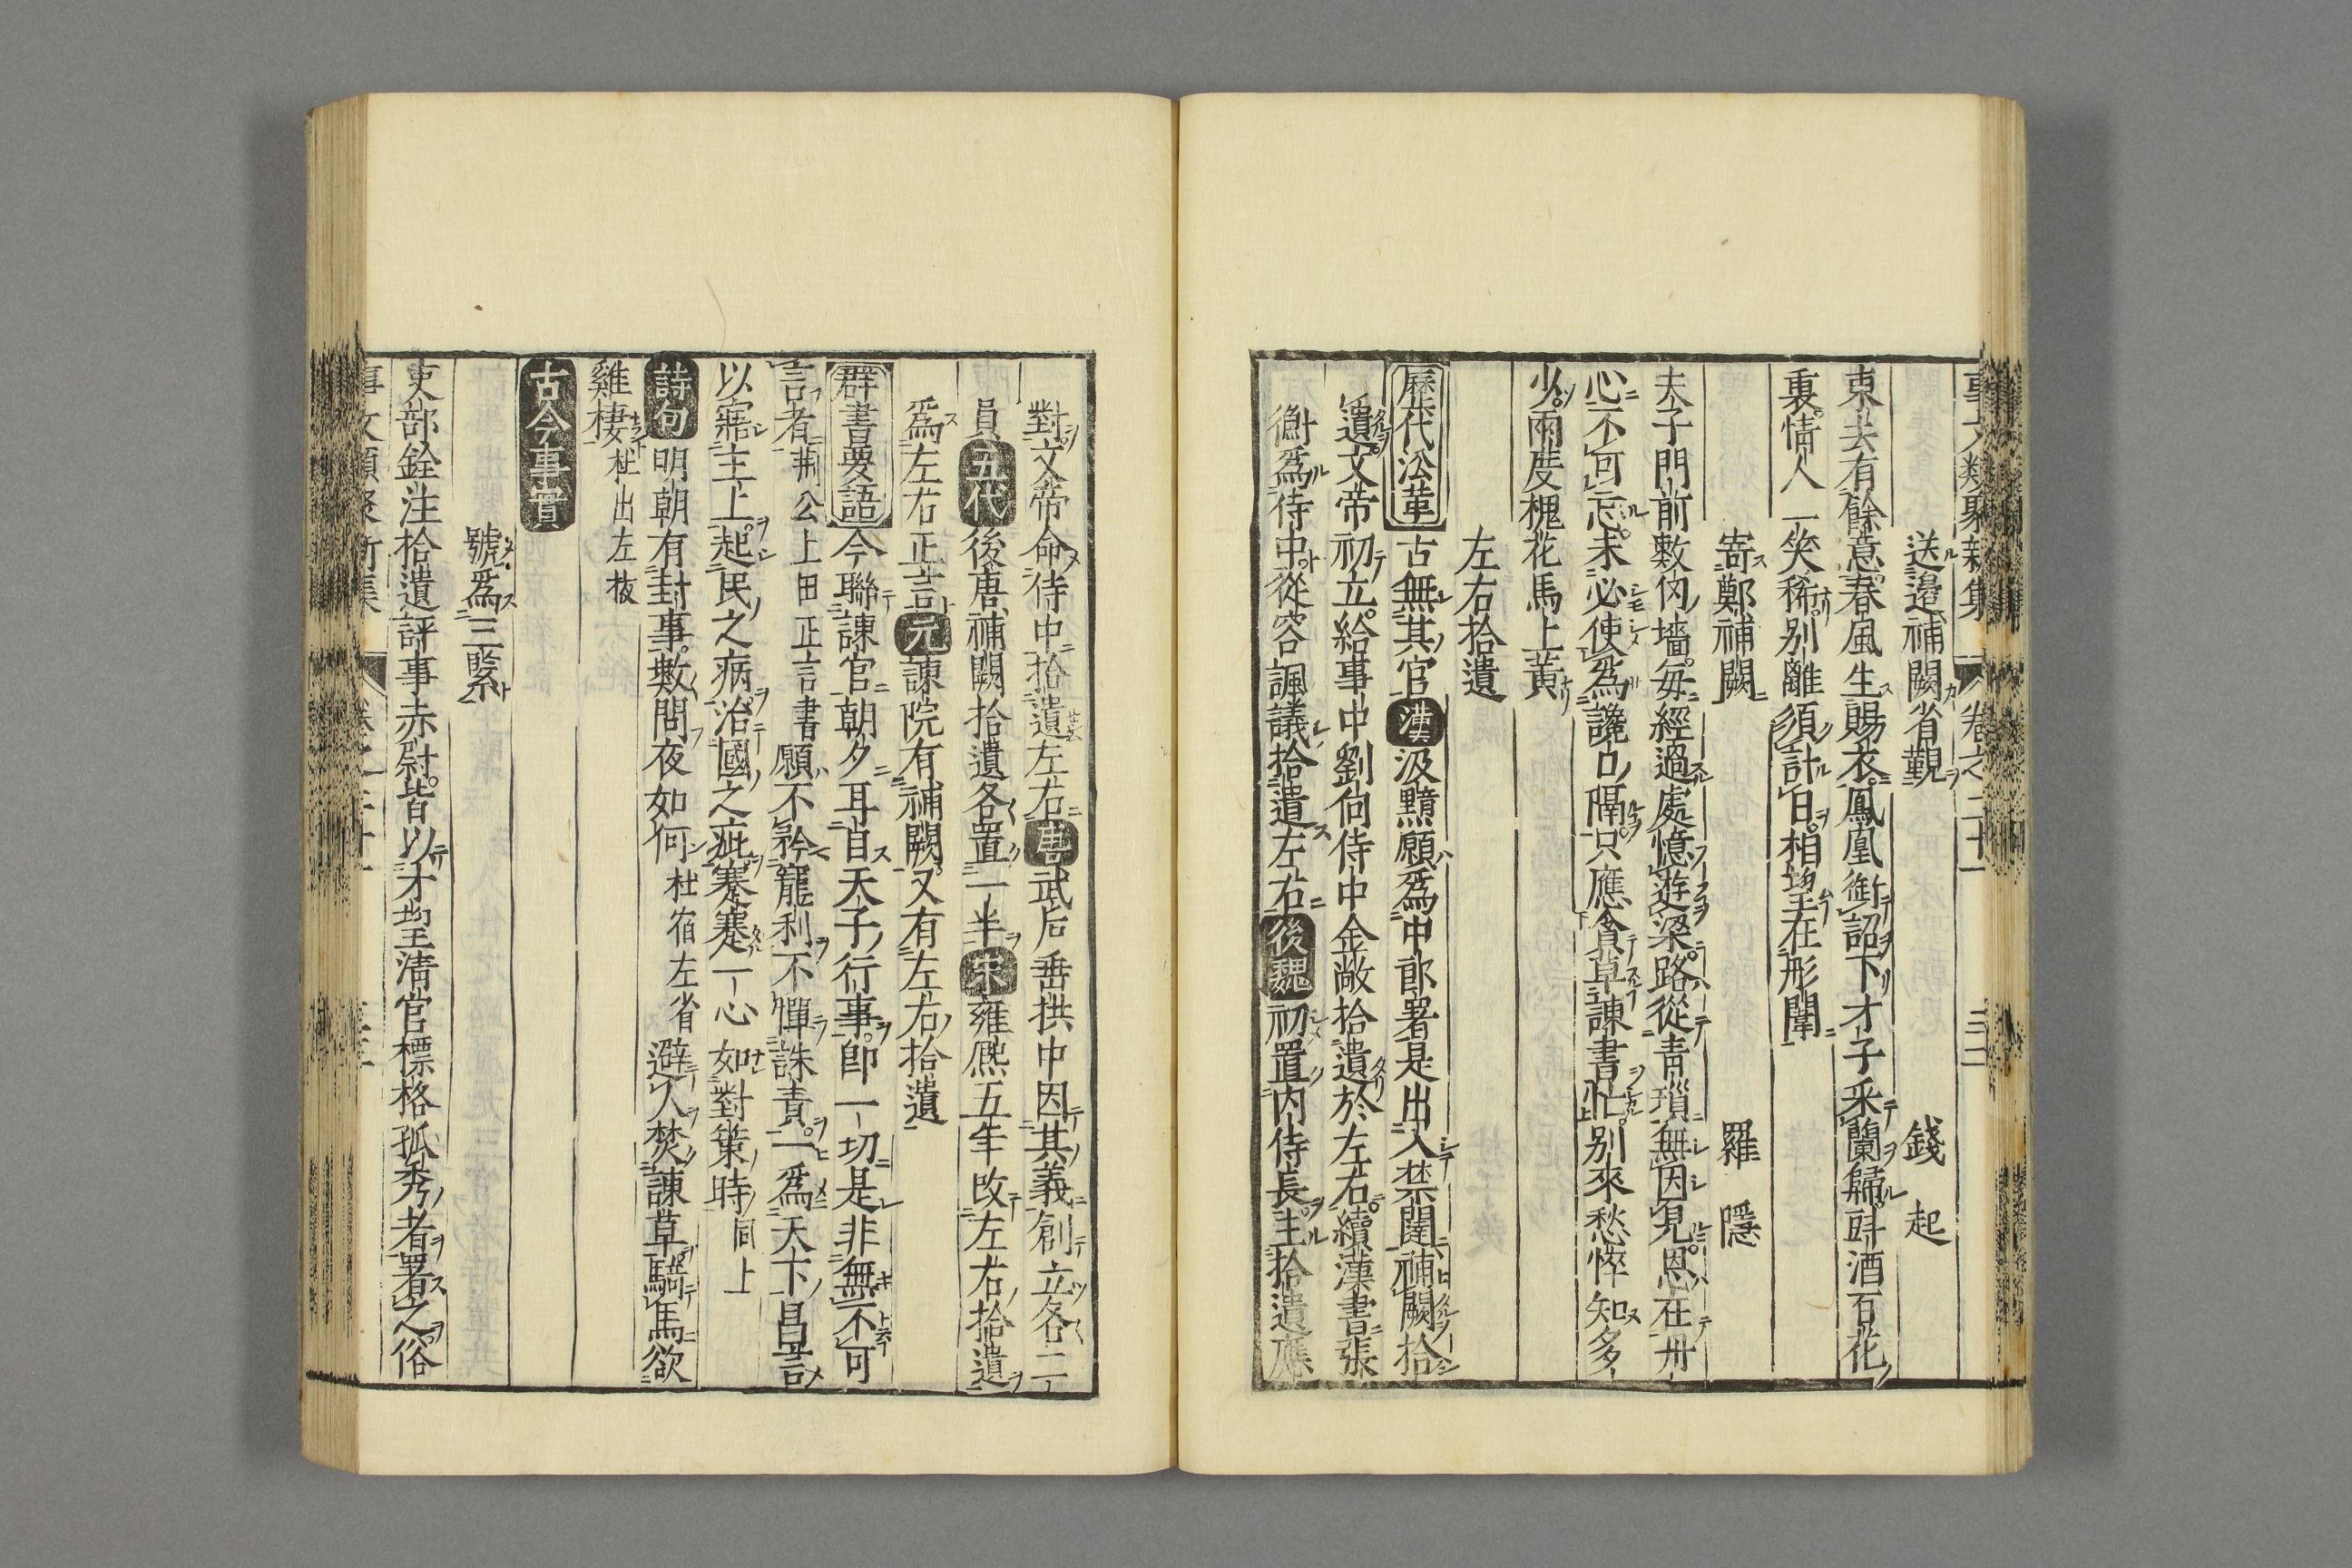 事文類聚新集 卷之二十一 三二
送邉補闕省覲 錢起
東去有餘意春風生賜衣鳳凰銜詔下才子采蘭歸斗酒百花
裏情人一笑稀别離須計日相望在彤闈
寄鄭補闕 羅隱
夫子門前數仭墻毎經過處憶遊梁路從青瑣無因見恩在丹
心不可忘未必便爲讒口隔只應貪草諫書忙别來愁悴知多
少兩度槐花馬上黄
左右拾遺
歷代沿革 古無其官漢汲黯願爲中郎署是出入禁闥補闕拾
遺文帝初立給事中劉向侍中金敞拾遺於左右續漢書張
衡爲侍中從容諷議拾遺左右後魏初置内侍長主拾遺應
對文帝命侍中拾遺左右唐武后垂拱中因其義創立各二
員五代後唐補闕拾遺各置一半宋雍熙五年改左右拾遺
爲左右正言元諫院有補闕又有左右拾遺
群書要語 今聯諫官朝夕耳目天子行事即一切是非無不可
言者荆公上田正言書願不矜寵利不憚誅責一爲天下昌言
以寤主上起民之病治國之疵蹇蹇一心如對策時同上
詩句 明朝有封事數問夜如何杜宿左省避人焚諫草騎馬欲
雞棲杜出左掖
古今事實
號爲三緊
吏部銓注拾遺評事赤尉皆以才望清官標格孤秀者署之俗